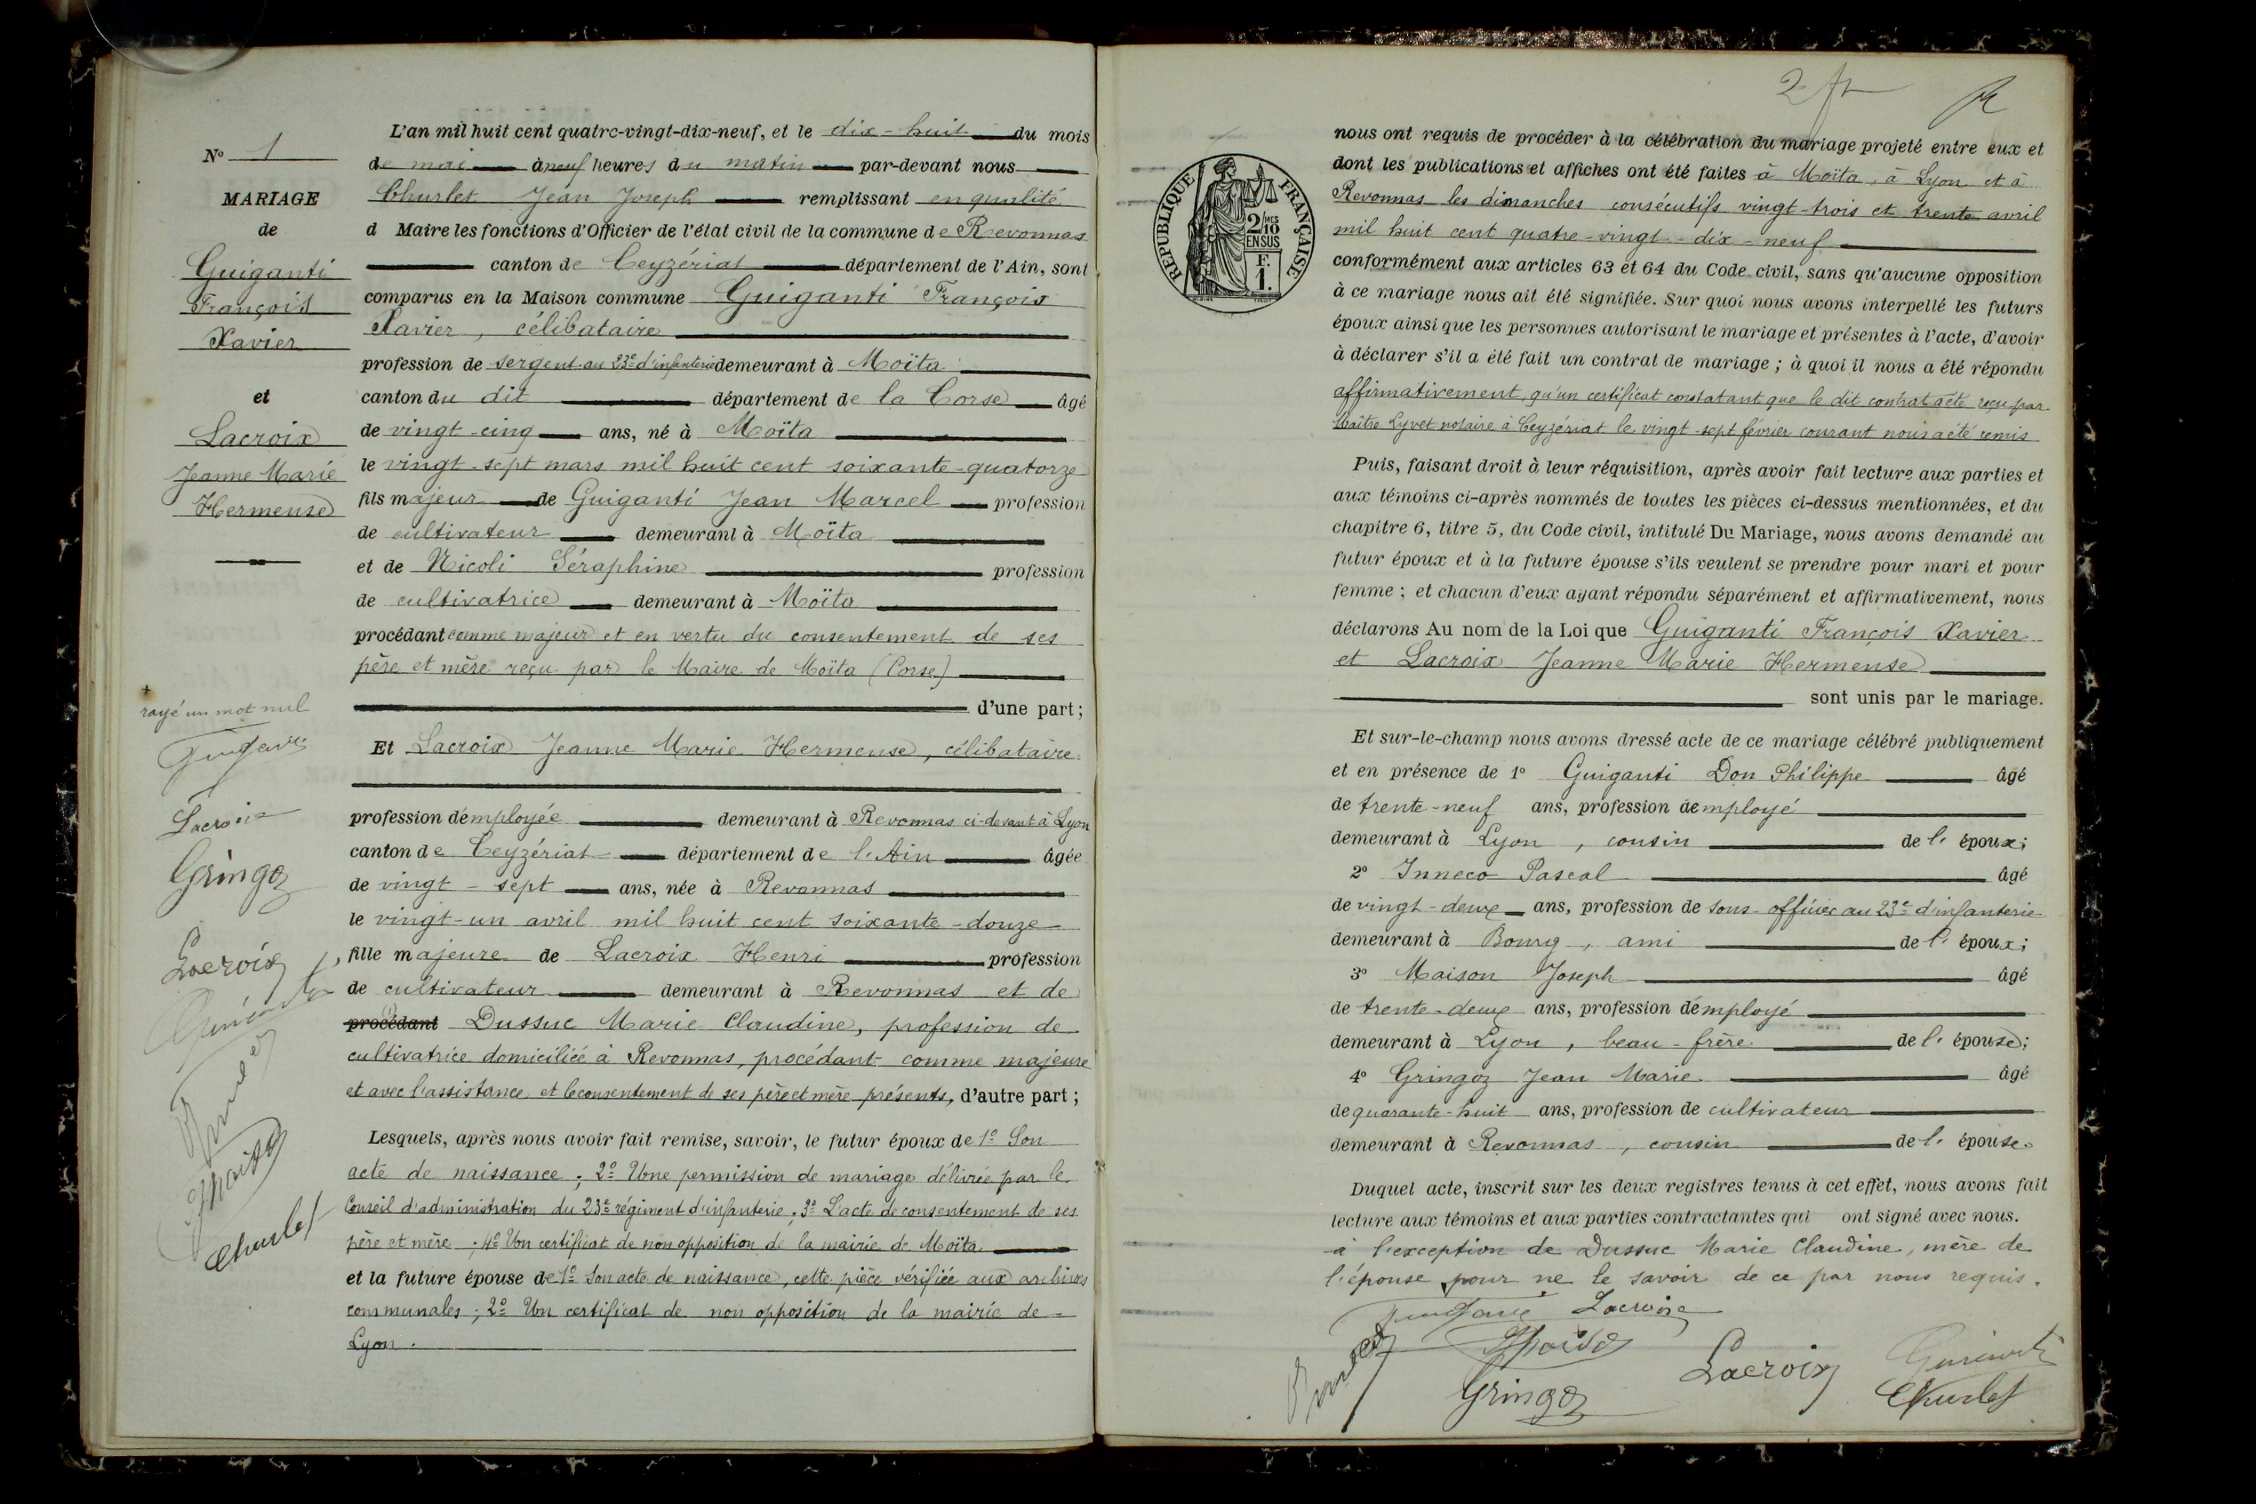 N° 1
MARIAGE
de
Guiganti
François
Xavier
et
Lacroix
Jeanne Marie
Hermense
rayé un mot nul
Lacroix
Gringoz
Lacroix
Churlet
L'an mil huit cent quatre-vingt-dix-neuf, et le dix-huit du mois
de mai à neuf heures du matin par-devant nous
Churlet Jean Joseph remplissant en qualité
d Maire les fonctions d'Officier de l'état civil de la commune de Revonnas
canton de Ceyzériat département de l'Ain, sont
comparus en la Maison commune Guiganti François
Xavier, célibataire
profession de sergent au 23e d'infanterie demeurant à Moïta
canton du dit département de la Corse âgé
de vingt-cinq ans, né à Moïta
le vingt-sept mars mil huit cent soixante-quatorze
fils majeur de Guiganti Jean Marcel profession
de cultivateur demeurant à Moïta
et de Nicoli Séraphine profession
de cultivatrice demeurant à Moïta
procédant comme majeur et en vertu du consentement de ses
père et mère reçu par le Maire de Moïta (Corse)
d'une part;
Et Lacroix Jeanne Marie Hermense, célibataire
profession d'employée demeurant à Revonnas ci-devant à Lyon
canton de Ceyzériat département de l'Ain âgée
de vingt-sept ans, née à Revonnas
le vingt-un avril mil huit cent soixante-douze
fille majeure de Lacroix Henri profession
de cultivateur demeurant à Revonnas et de
procédant Dussuc Marie Claudine, profession de
cultivatrice domiciliée à Revonnas, procédant comme majeure
et avec l'assistance et le consentement de ses père et mère présents, d'autre part;
Lesquels, après nous avoir fait remise, savoir, le futur époux de 1° Son
acte de naissance; 2° Une permission de mariage délivrée par le
Conseil d'administration du 23e régiment d'infanterie; 3° L'acte de consentement de ses
père et mère; 4° Un certificat de non opposition de la mairie de Moïta
et la future épouse de 1° Son acte de naissance, cette pièce vérifiée aux archives
communales; 2° Un certificat de non opposition de la mairie de
Lyon.
2
RÉPUBLIQUE FRANÇAISE
2/10 MES
EN SUS
F.
1.
nous ont requis de procéder à la célébration du mariage projeté entre eux et
dont les publications et affiches ont été faites à Moïta, à Lyon et à
Revonnas les dimanches consécutifs vingt-trois et trente avril
mil huit cent quatre-vingt-dix-neuf
conformément aux articles 63 et 64 du Code civil, sans qu'aucune opposition
à ce mariage nous ait été signifiée. Sur quoi nous avons interpellé les futurs
époux ainsi que les personnes autorisant le mariage et présentes à l'acte, d'avoir
à déclarer s'il a été fait un contrat de mariage; à quoi il nous a été répondu
affirmativement, qu'un certificat constatant que le dit contrat a été reçu par
Maître Lyvet notaire à Ceyzériat le vingt-sept février courant nous a été remis
Puis, faisant droit à leur réquisition, après avoir fait lecture aux parties et
aux témoins ci-après nommés de toutes les pièces ci-dessus mentionnées, et du
chapitre 6, titre 5, du Code civil, intitulé Du Mariage, nous avons demandé au
futur époux et à la future épouse s'ils veulent se prendre pour mari et pour
femme; et chacun d'eux ayant répondu séparément et affirmativement, nous
déclarons Au nom de la Loi que Guiganti François Xavier
et Lacroix Jeanne Marie Hermense
sont unis par le mariage.
Et sur-le-champ nous avons dressé acte de ce mariage célébré publiquement
et en présence de 1° Guiganti Don Philippe âgé
de trente-neuf ans, profession d'employé
demeurant à Lyon, cousin de l' époux;
2° Inneco Pascal âgé
de vingt-deux ans, profession de sous-officier au 23e d'infanterie
demeurant à Bourg, ami de l' époux;
3° Maison Joseph âgé
de trente-deux ans, profession d'employé
demeurant à Lyon, beau-frère de l' épouse;
4° Gringoz Jean Marie âgé
de quarante-huit ans, profession de cultivateur
demeurant à Revonnas, cousin de l' épouse.
Duquel acte, inscrit sur les deux registres tenus à cet effet, nous avons fait
lecture aux témoins et aux parties contractantes qui ont signé avec nous.
à l'exception de Dussuc Marie Claudine, mère de
l'épouse pour ne le savoir de ce par nous requis.
Lacroix
Gringoz
Lacroix
Churlet